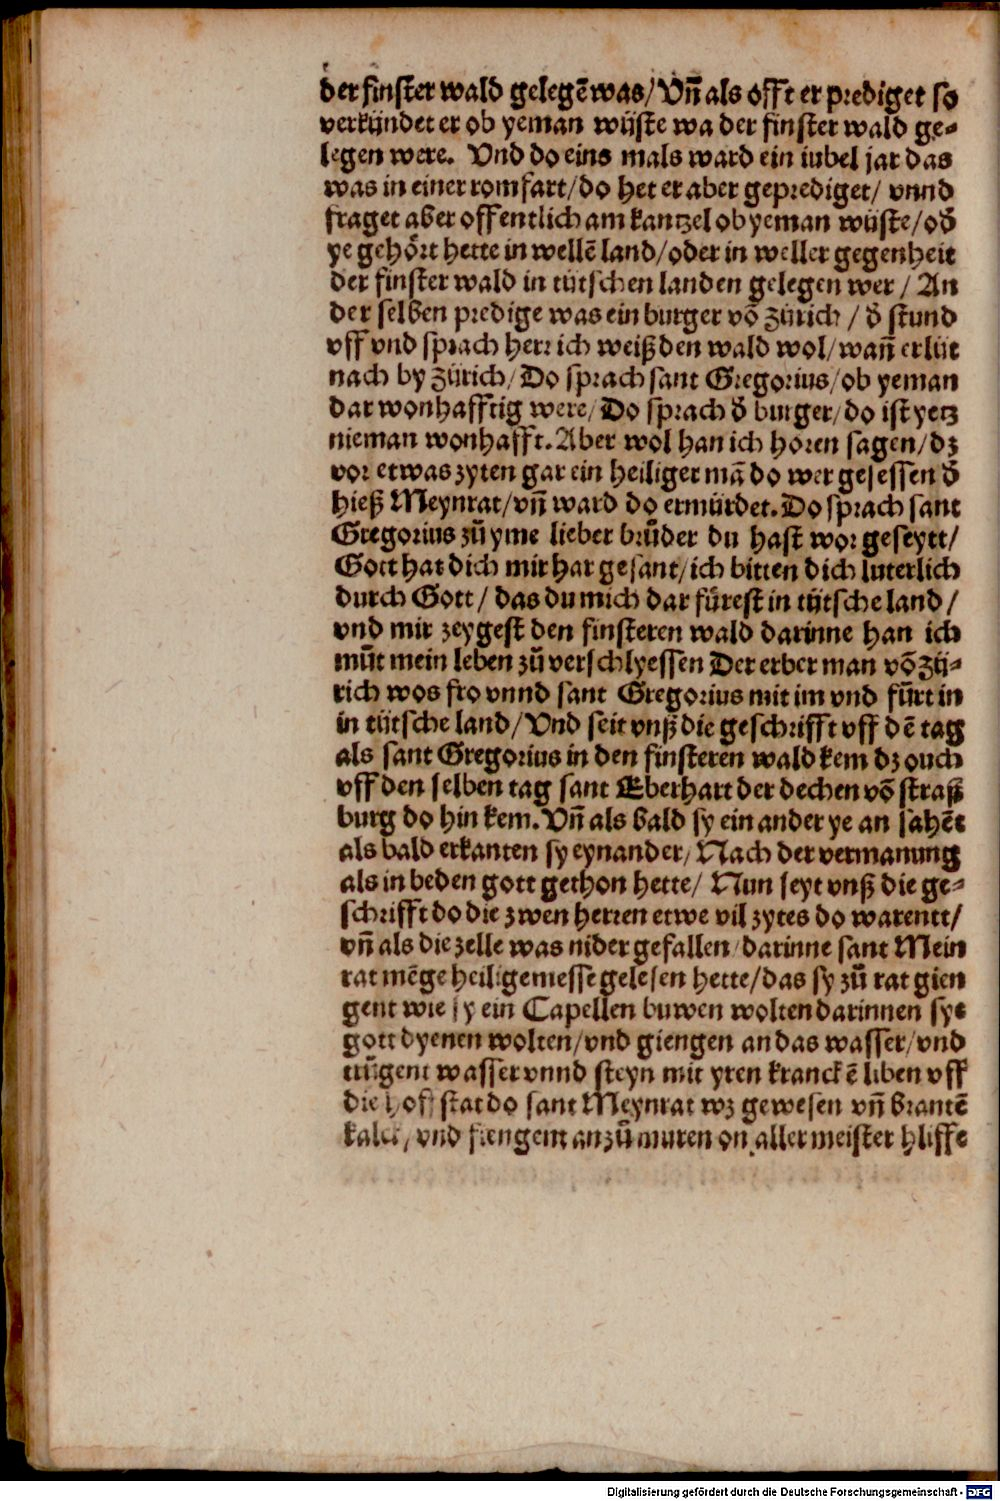 der finster wald gelegẽ was/ Vñ als offt er prediget so
verkündet er ob yeman wüste wa der finster wald ge⸗
legen were. Vnd do eins mals ward ein iubel jar das
was in einer romfart/ do het er aber geprediget/ vnnd
fraget aber offentlich am kantzel ob yeman wüste/ od̕
ye gehört hette in wellẽ land/ oder in weller gegenheit
der finster wald in tütschen landen gelegen wer / An
der selben predige was ein burger võ Zürich / d̕ stund
vff vnd sprach herr ich weiß den wald wol/ wañ er lüt
nach by Zürich/ Do sprach sant Gregorius/ ob yeman
dar wonhafftig were/ Do sprach d̕ burger/ do ist yetz
nieman wonhafft. Aber wol han ich horen sagen/ dz
vor etwas zyten gar ein heiliger mã do wer gesessen d̕
hieß Meynrat/ vñ ward do ermürdet. Do sprach sant
Gregorius zů yme lieber brůder du hast wor geseytt/
Gott hat dich mir har gesant/ ich bitten dich luterlich
durch Gott / das du mich dar fürest in tütsche land/
vnd mir zeygest den finsteren wald darinne han ich
můt mein leben zů verschlyessen Der erber man võ Zü⸗
rich wos fro vnnd sant Gregorius mit im vnd fůrt in
in tütsche land/ Vnd seit vnß die geschrifft vff dẽ tag
als sant Gregorius in den finsteren wald kem dz ouch
vff den selben tag sant Eberhart der dechen võ straß
burg do hin kem. Vñ als bald sy ein ander ye an sahẽt
als bald erkanten sy eynander/ Nach der vermanung
als in beden gott gethon hette/ Nun seyt vnß die ge⸗
schrifft do die zwen herren etwe vil zytes do warentt/
vñ als die zelle was nider gefallen darinne sant Mein
rat mẽge heilige messe gelesen hette/ das sy zů rat gien
gent wie sy ein Capellen buwen wolten darinnen sye
gott dyenen wolten/ vnd giengen an das wasser/ vnd
trůgent wasser vnnd steyn mit yren kranckẽ liben vff
die hof stat do sant Meynrat wz gewesen vñ brantẽ
kalck/ vnd fiengent an zů muren on aller meister hliffe
Digitalisierung gefördert durch die Deutsche Forschungsgemeinschaft - DFG